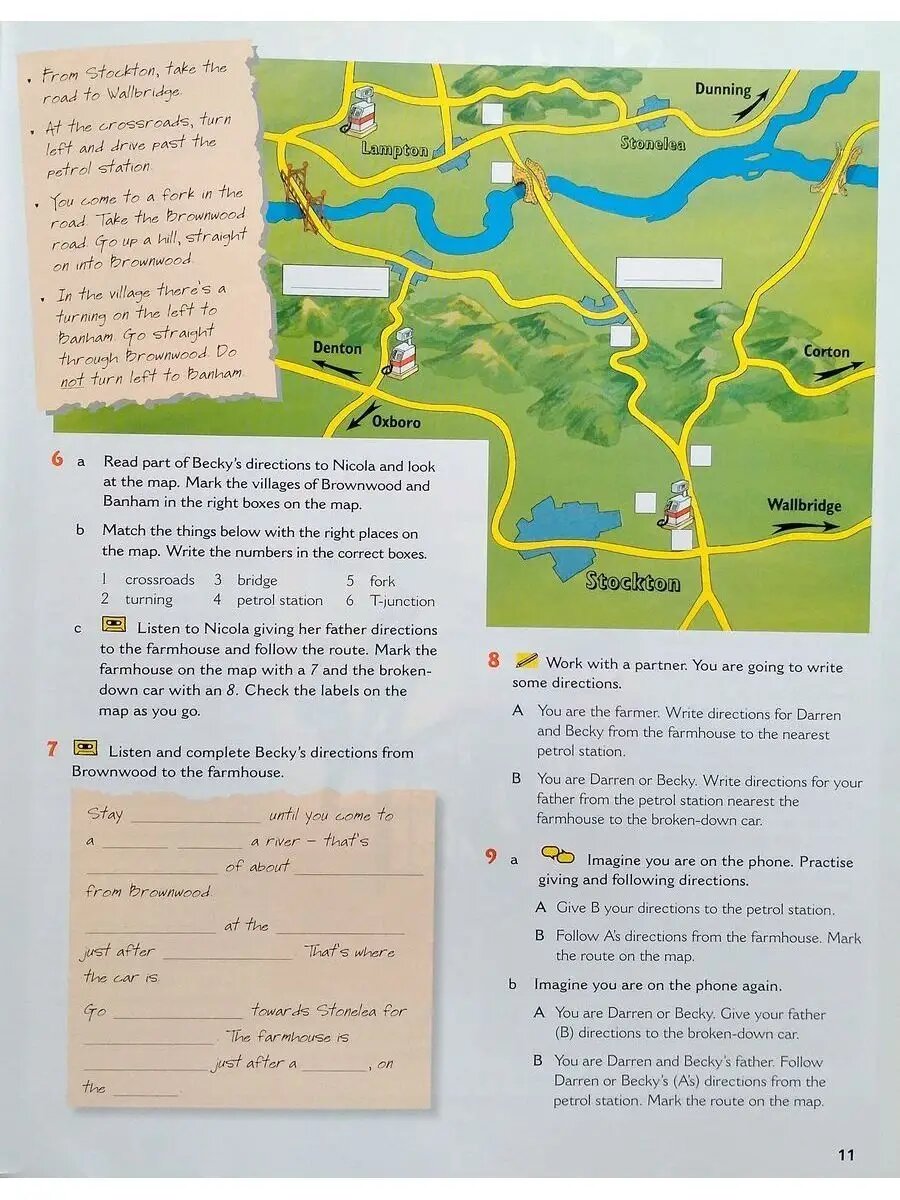 • From Stockton, take the
road to Wallbridge.
• At the crossroads, turn
left and drive past the
petrol station.
• You come to a fork in the
road. Take the Brownwood
road. Go up a hill, straight
on into Brownwood.
• In the village there's a
turning on the left to
Banham. Go straight
through Brownwood. Do
not turn left to Banham.
Dunning
Lampton
Stonelea
Denton
Corton
Oxboro
Wallbridge
Stockton
6 a Read part of Becky's directions to Nicola and look
at the map. Mark the villages of Brownwood and
Banham in the right boxes on the map.
b Match the things below with the right places on
the map. Write the numbers in the correct boxes.
1 crossroads 3 bridge 5 fork
2 turning 4 petrol station 6 T-junction
c Listen to Nicola giving her father directions
to the farmhouse and follow the route. Mark the
farmhouse on the map with a 7 and the broken-
down car with an 8. Check the labels on the
map as you go.
7 Listen and complete Becky's directions from
Brownwood to the farmhouse.
Stay ____________ until you come to
a ________ ______ a river – that's
____________ of about ____________
from Brownwood.
____________ at the ____________
just after ____________. That's where
the car is.
Go ____________ towards Stonelea for
____________. The farmhouse is
____________ just after a ______, on
the ______
8 Work with a partner. You are going to write
some directions.
A You are the farmer. Write directions for Darren
and Becky from the farmhouse to the nearest
petrol station.
B You are Darren or Becky. Write directions for your
father from the petrol station nearest the
farmhouse to the broken-down car.
9 a Imagine you are on the phone. Practise
giving and following directions.
A Give B your directions to the petrol station.
B Follow A's directions from the farmhouse. Mark
the route on the map.
b Imagine you are on the phone again.
A You are Darren or Becky. Give your father
(B) directions to the broken-down car.
B You are Darren and Becky's father. Follow
Darren or Becky's (A's) directions from the
petrol station. Mark the route on the map.
11